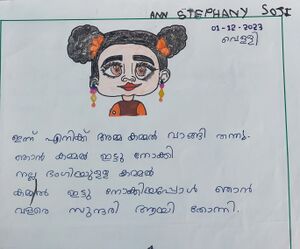 ANN STEPHANY SOJI
01-12-2023
വെള്ളി
ഇന്ന് എനിക്ക് അമ്മ കമ്മൽ വാങ്ങി തന്നു.
ഞാൻ കമ്മൽ ഇട്ടു നോക്കി
നല്ല ഭംഗിയുള്ള കമ്മൽ
കമ്മൽ ഇട്ടു നോക്കിയപ്പോൾ ഞാൻ
വളരെ സുന്ദരി ആയി തോന്നി.